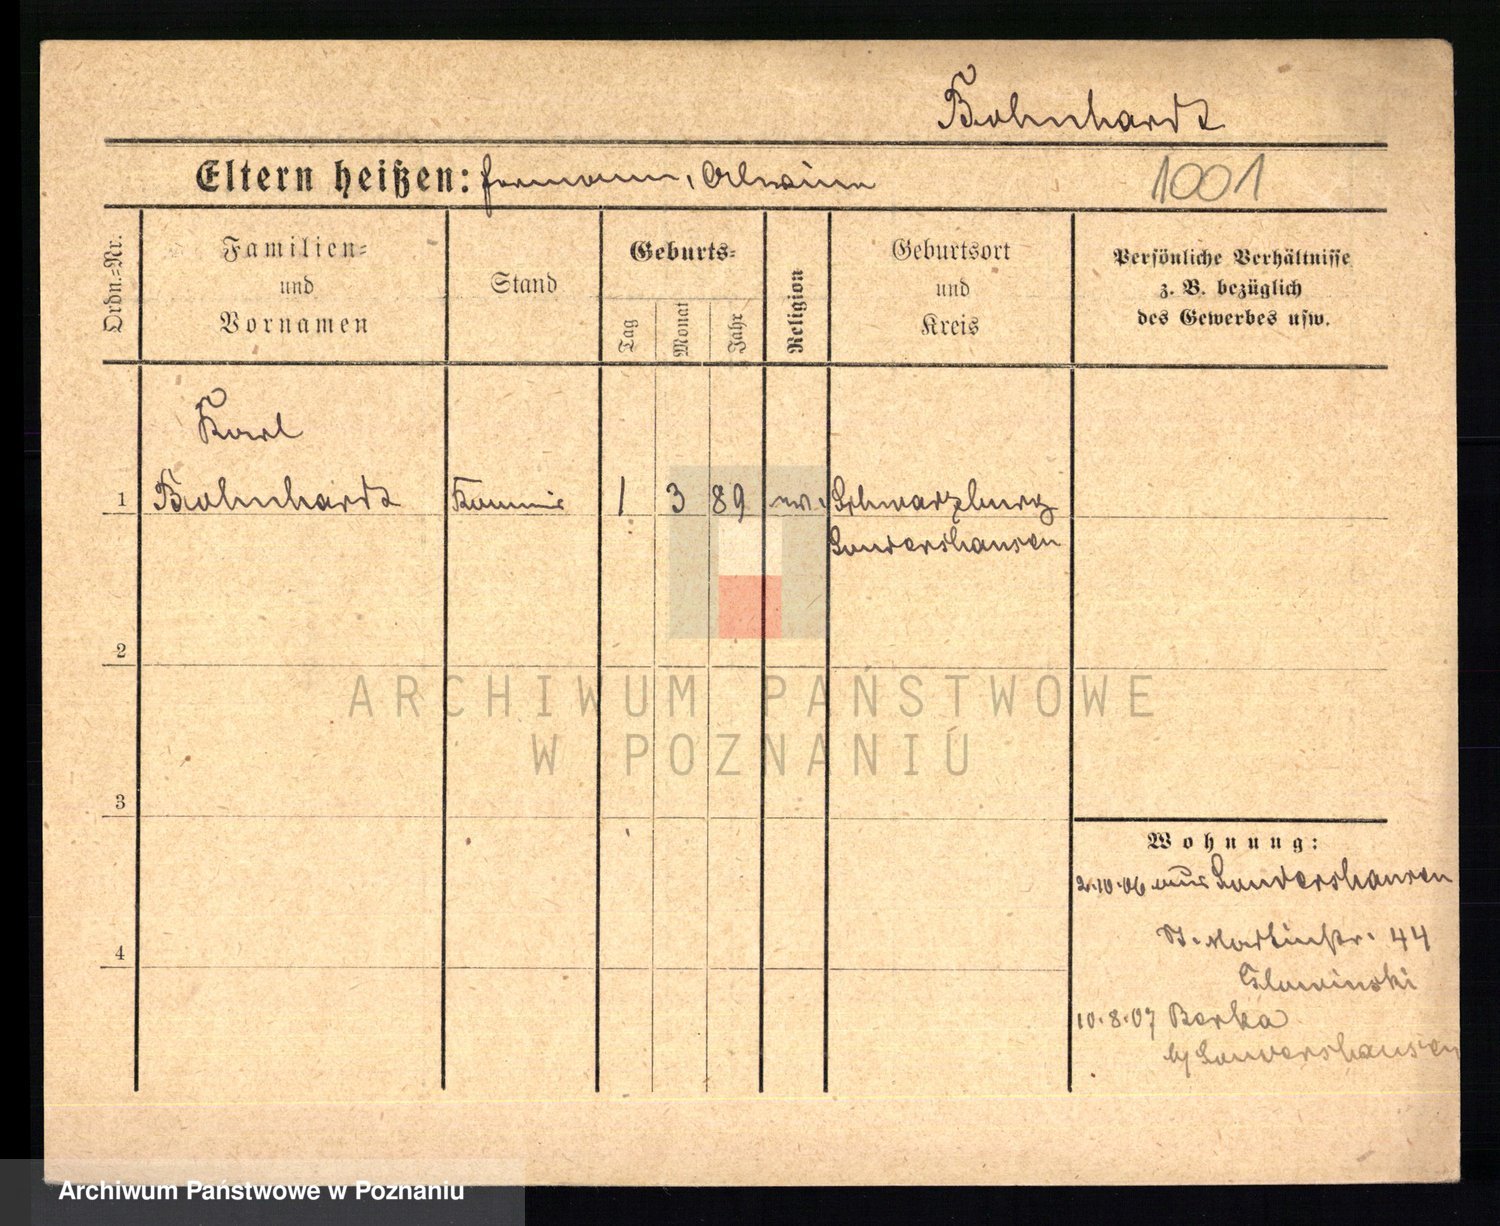 Bohnhardt
Eltern heißen: Hermann, Alwine
1001
Ordn.-Nr.
Familien-
und
Vornamen
Stand
Geburts-
Tag
Monat
Jahr
Religion
Geburtsort
und
Kreis
Persönliche Verhältnisse
z. B. bezüglich
des Gewerbes usw.
Karl
1 Bohnhardt Kommis 1 3 89 ev. Schwarzburg
Sondershausen
2
ARCHIWUM PAŃSTWOWE
W POZNANIU
3
4
Wohnung:
2.10.06 aus Sondershausen
St. Martinstr. 44
Glowinski
10.8.07 Berka
b/ Sondershausen
Archiwum Państwowe w Poznaniu